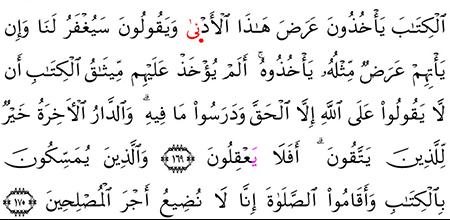 ٱلْكِتَٰبَ يَأْخُذُونَ عَرَضَ هَٰذَا ٱلْأَدْنَىٰ وَيَقُولُونَ سَيُغْفَرُ لَنَا وَإِن
يَأْتِهِمْ عَرَضٌ مِّثْلُهُۥ يَأْخُذُوهُ ۚ أَلَمْ يُؤْخَذْ عَلَيْهِم مِّيثَٰقُ ٱلْكِتَٰبِ أَن
لَّا يَقُولُوا۟ عَلَى ٱللَّهِ إِلَّا ٱلْحَقَّ وَدَرَسُوا۟ مَا فِيهِ ۗ وَٱلدَّارُ ٱلْأَخِرَةُ خَيْرٌ
لِّلَّذِينَ يَتَّقُونَ ۗ أَفَلَا يَعْقِلُونَ ﴿١٦٩﴾ وَٱلَّذِينَ يُمَسِّكُونَ
بِٱلْكِتَٰبِ وَأَقَامُوا۟ ٱلصَّلَوٰةَ إِنَّا لَا نُضِيعُ أَجْرَ ٱلْمُصْلِحِينَ ﴿١٧٠﴾